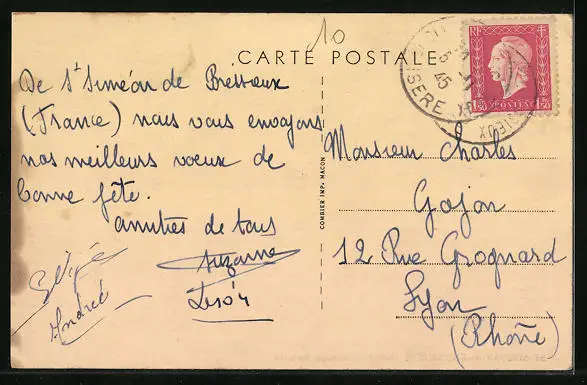 10
CARTE POSTALE
De St Siméon de Bressieux
(France) nous vous envoyons
nos meilleurs voeux de
bonne fête.
amitiés de tous
Suzanne
André
COMBIER IMP. MACON
RF
POSTES
1f50 1f50
45
ISERE
Monsieur Charles
Gojon
12 Rue Grognard
Lyon
(Rhône)